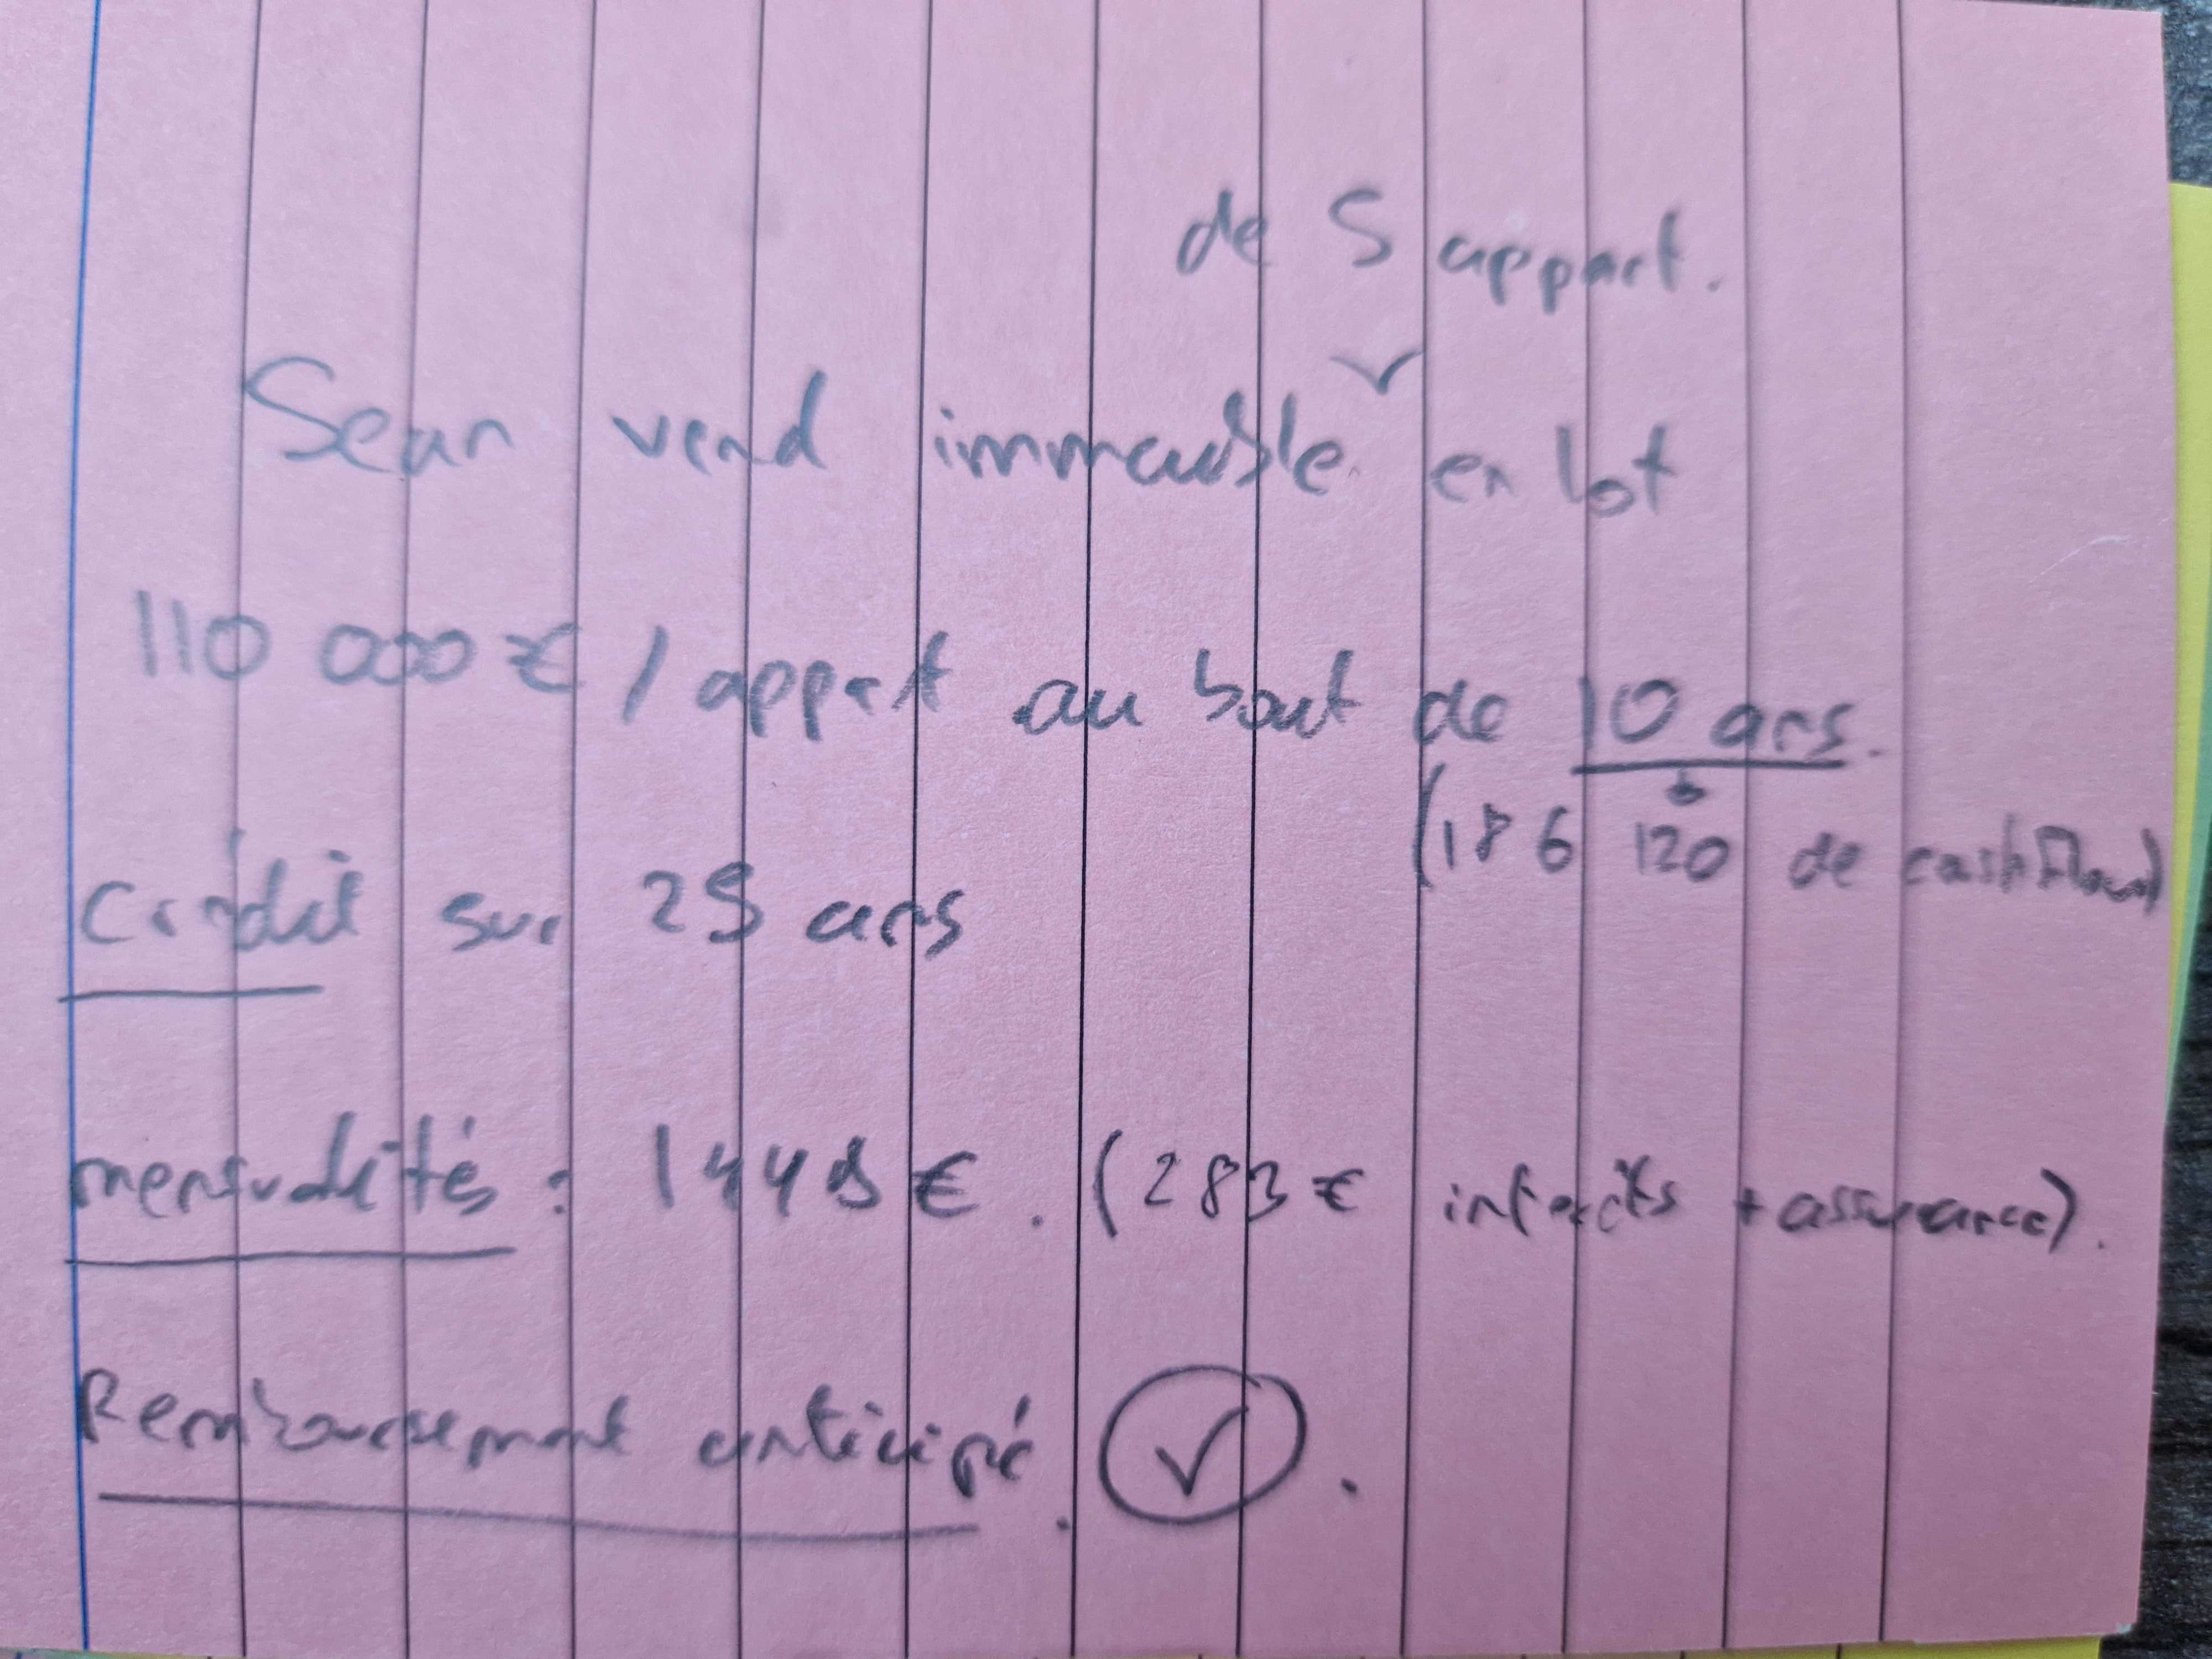 de 5 appart.
Sean vend immeuble en lot
110 000 € / appart au bout de 10 ans.
(186 120 de cashflow)
Crédit sur 25 ans
mensualités : 1445 €. (283 € intérêts + assurance).
Remboursement anticipé. ✓.